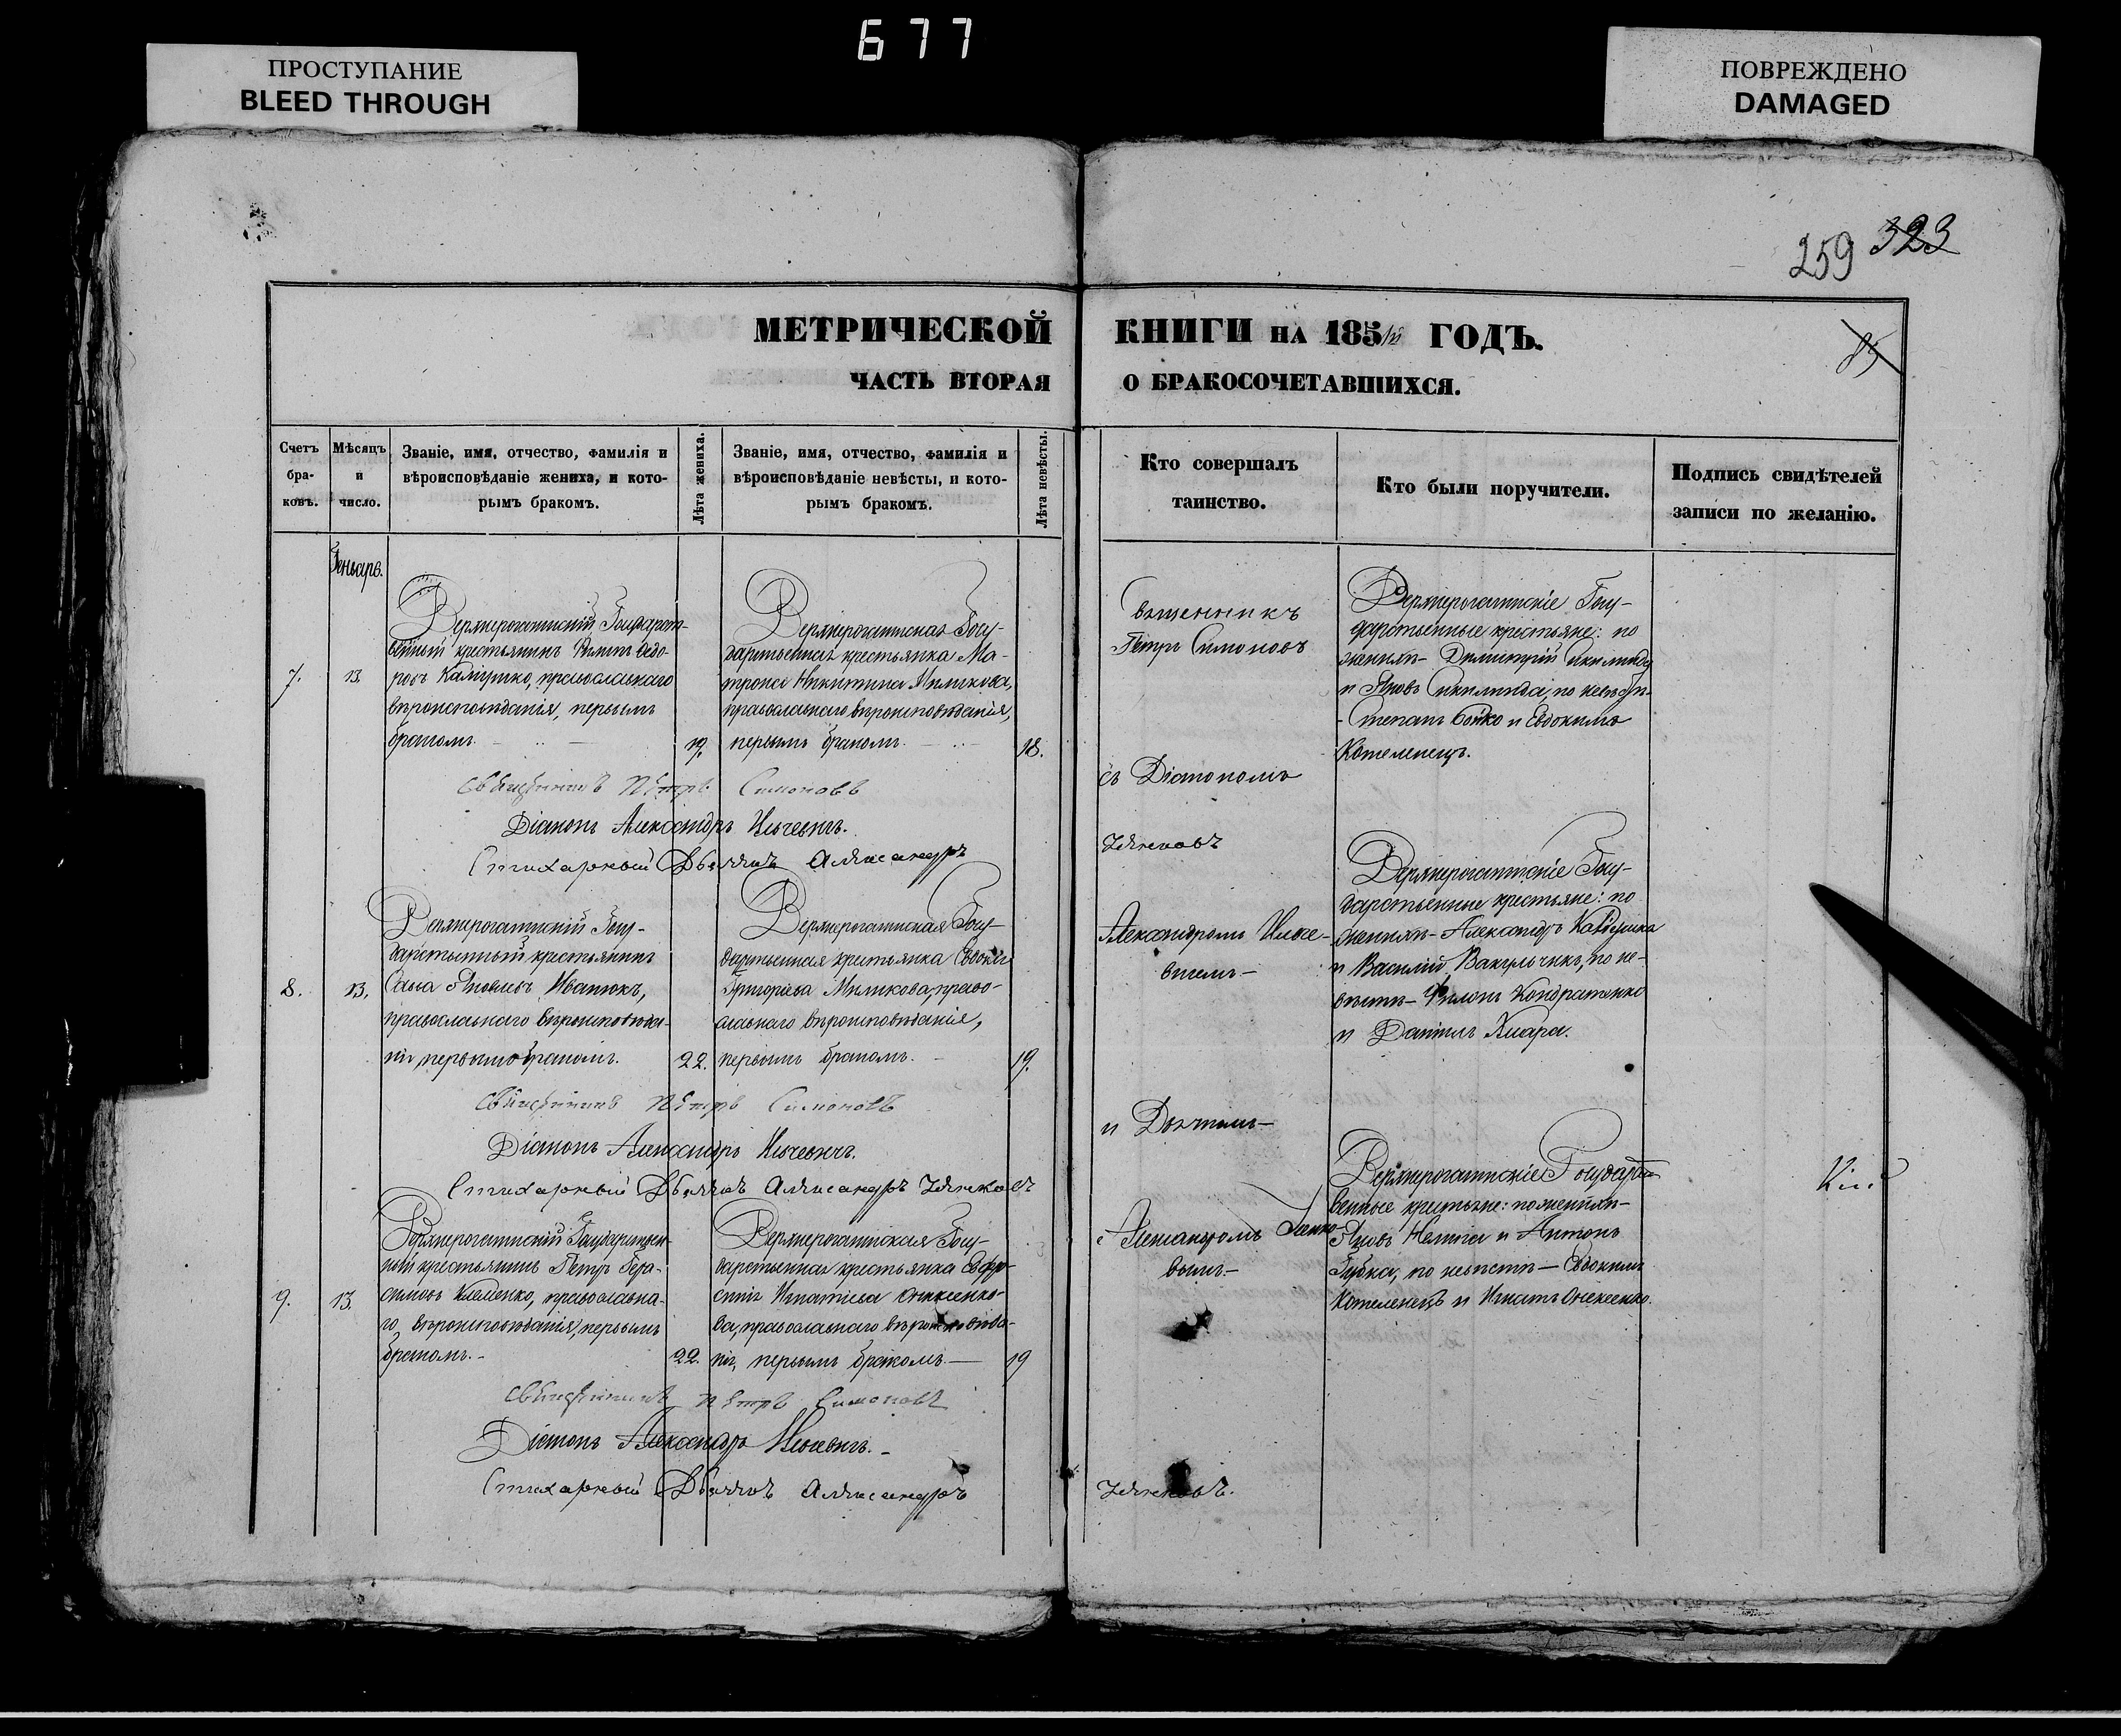 677
ПРОСТУПАНИЕ
BLEED THROUGH
ПОВРЕЖДЕНО
DAMAGED
259 323
МЕТРИЧЕСКОЙ КНИГИ НА 185 ГОДЪ.
85
ЧАСТЬ ВТОРАЯ О БРАКОСОЧЕТАВШІИХСЯ.
Счетъ
бра-
ковъ.
Мѣсяцъ
и
число.
Званіе, имя, отчество, фамилія и
вѣроисповѣданіе жениха, и кото-
рымъ бракомъ.
Лѣта жениха.
Званіе, имя, отчество, фамилія и
вѣроисповѣданіе невѣсты, и кото-
рымъ бракомъ.
Лѣта невѣсты.
Кто совершалъ
таинство.
Кто были поручители.
Подпись свидѣтелей
записи по желанію.
7.
13.
крестьянинъ Филипъ Ѳедо-
ровъ православнаго
вѣроисповѣданія, первымъ
бракомъ.
19.
Верхнерогачикская Госу-
дарственная крестьянка Ма-
трона Никитина Миликова,
православнаго вѣроисповѣданія,
первымъ бракомъ.
18.
Священникъ
Петръ Симоновъ
съ Діакономъ
Верхнерогачикскіе Госу-
дарственные крестьяне: по
женихѣ- Димитрій
и Яковъ по невѣстѣ
- Степанъ Бойко и Евдокимъ
Котеленецъ.
Священникъ Петръ Симоновъ
Діаконъ Александръ Ильчевичъ.
Стихарный Дьячекъ Александръ
8.
13.
Верхнерогачикскій Госу-
дарственный крестьянинъ
Савва Яковлевъ Иванюкъ,
православнаго вѣроисповѣда-
нія, первымъ бракомъ.
22.
Верхнерогачикская Госу-
дарственная крестьянка
Григоріева Миликова, право-
славнаго вѣроисповѣданія,
первымъ бракомъ.
19.
Александромъ Ильче-
вичемъ-
и Дьячкомъ-
Верхнерогачикскіе Госу-
дарственные крестьяне: по
женихѣ- Александръ
и Василій Вакульчикъ, по не-
вѣстѣ- Филипъ Кондратенко
и Даніилъ
Священникъ Петръ Симоновъ
Діаконъ Александръ Ильчевичъ.
Стихарный Дьячекъ Александръ
9.
13.
Верхнерогачикскій Государствен-
ный крестьянинъ Петръ Гера-
симовъ Клеменко, православна-
го вѣроисповѣданія, первымъ
бракомъ.-
22.
Верхнерогачикская Госу-
дарственная крестьянка Евфро-
синія Игнатіева Онкеенко-
ва, православнаго вѣроисповѣда-
нія, первымъ бракомъ.
19
Александромъ
вымъ.-
Верхнерогачикскіе Государст-
венные крестьяне: по женихѣ-
Яковъ и Антонъ
Губка, по невѣстѣ- Евдокимъ
Котеленецъ и Игнатъ
Священникъ Петръ Симоновъ
Діаконъ Александръ Ильчевичъ.-
Стихарный Дьячекъ Александръ